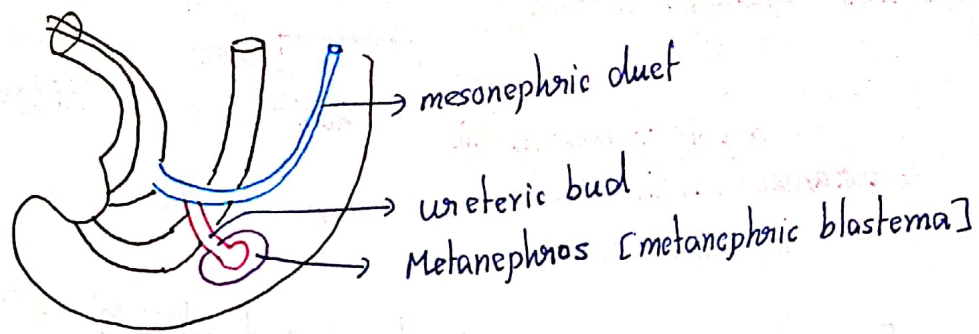 mesonephric duct
ureteric bud
Metanephros [metanephric blastema]